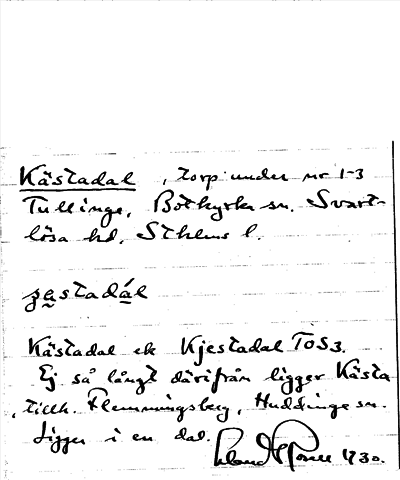 Kästadal, torp under nr 1-3
Tullinge, Botkyrka sn. Svart-
lösa hd, Sthlms l.
Kästadal ek Kjestadal TOS3.
Ej så långt därifrån ligger Kästa
, tillh. Flemmingsberg, Huddinge sn.
Ligger i en dal.
1930.